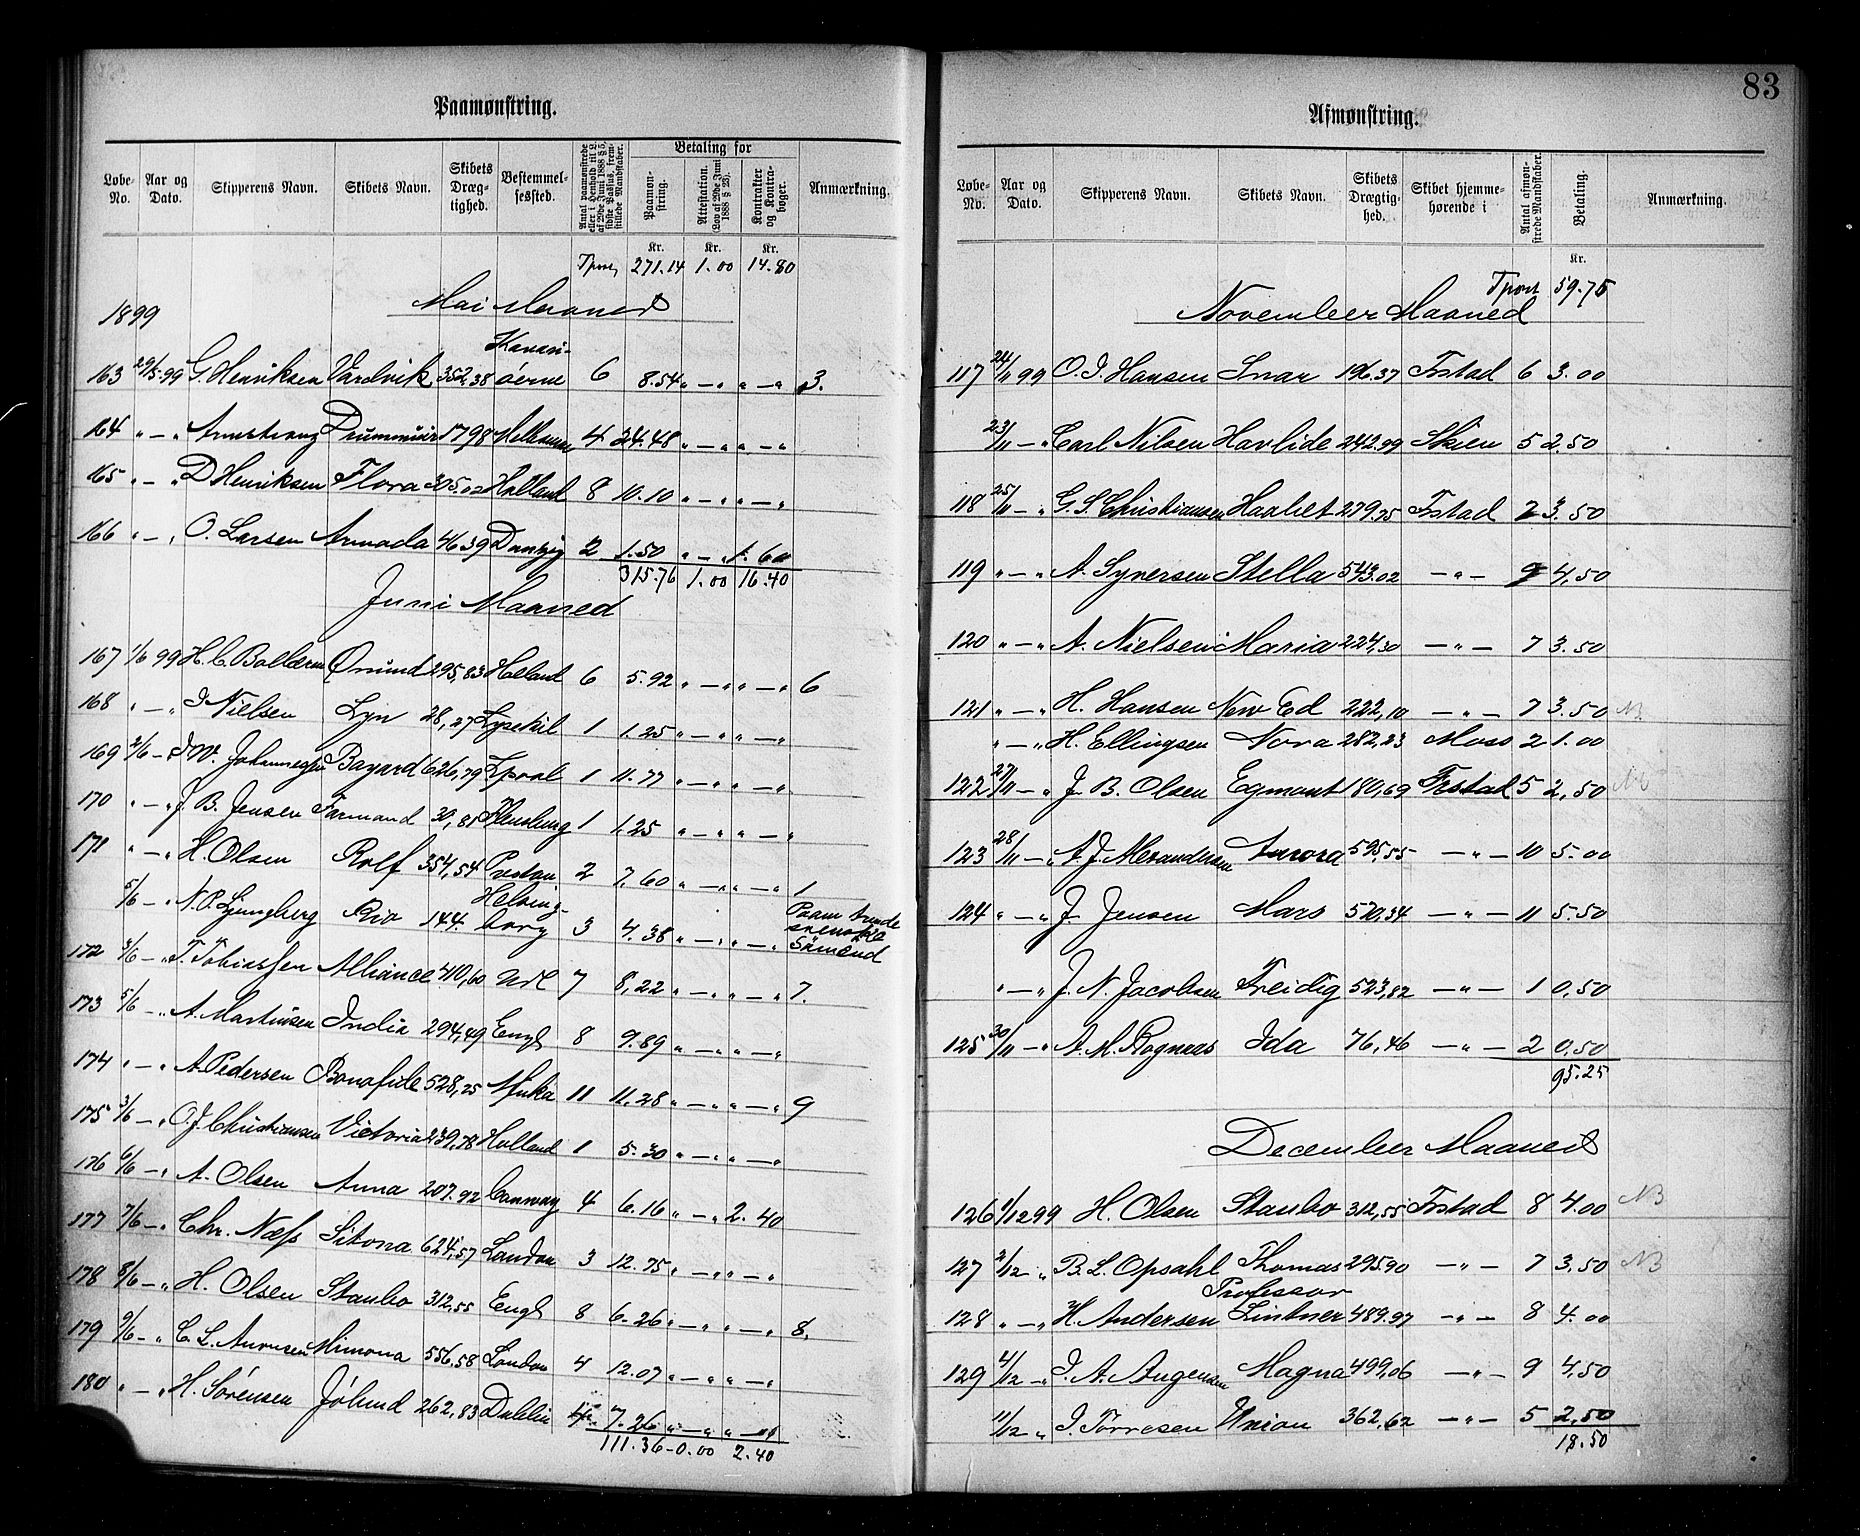 83
Paamønstring.
Løbe-No. Aar og Dato. Skipperens Navn. Skibets Navn. Skibets Dræg-tighed. Bestemmel-sessted. Antal paamønstrede eller i Henhold til L. af 29de Juni 1888 § 5, sidste Passus, frem-stillede Mandskaber. Betaling for Paamøn-string. Attestation. (Lov af 29de Juni 1888 § 23). Kontrakter og Kontra-bøger. Anmærkning.
Kr. Kr. Kr.
Tport 271.14 1.00 14.80
1899 Mai Maaned
163 29/5 99 G. Henriksen Vardvik 352,38 Kanari-öerne 6 8.54 „ — „ „ — „ 3.
164 „ — „ Armstrong Drummuir 1798 4 24.48 „ — „ „ — „
165 „ — „ D Henriksen Flora 305.02 Holland 8 10.10 „ — „ „ — „
166 „ — „ O. Larsen Armada 4639 Danzig 2 1.50 „ — „ 1.60
315.76 1.00 16.40
Juni Maaned
167 1/6 99 H. C. Ønund 295,83 Holland 6 5.92 „ — „ „ — „ 6
168 „ — „ I Nielsen Lyn 28,27 Lysekil 1 1.25 „ — „ „ — „
169 2/6 — „ Johannessen Bayard 626,79 Lpool 1 11.77 „ — „ „ — „
170 „ — „ J. B. Jensen Farmand 30,81 Flensburg 1 1,25 „ — „ „ — „
171 „ — „ H. Olsen Rolf 354,54 Preston 2 7,60 „ — „ „ — „ 1
5/6 — „ N. P. Ljungberg Rio 144. Helsing-borg 3 4.38 „ — „ „ — „ svenske Sömænd
172 3/6 — „ T. Tobiassen Alliance 410,60 Urk 7 8,22 „ — „ „ — „ 7.
173 5/6 — „ A. Martinsen India 294,49 Engl 8 9.89 „ — „ „ — „
174 „ — „ A Pedersen Bonafide 528,25 Afrika 11 11.28 „ — „ „ — „ 9
175 3/6 — „ O. J. Christiansen Victoria 239,78 Holland 1 5.30 „ — „ „ — „
176 6/6 — „ A. Olsen Anna 207.92 Conway 4 6.16 „ — „ 2.40
177 7/6 — „ Chr. Næss Sitona 624,57 London 3 12.75 „ — „ „ — „
178 8/6 — „ H. Olsen Staubo 312,55 Engl 8 6.26 „ — „ „ — „ 8.
179 9/6 — „ C. L. Mimona 556,58 London 4 12.07 „ — „ „ — „
180 „ — „ H. Sörensen Jölund 262,83 Dublin 7.26 „ — „ „ — „
111.36 – 0.00 2.40
Afmønstring.
Løbe-No. Aar og Dato. Skipperens Navn. Skibets Navn. Skibets Drægtig-hed. Skibet hjemme-hørende i Antal afmøn-strede Mandskaber. Betaling. Anmærkning.
Kr.
Tport 59.75
November Maaned
117 24/11 99 O. I. Hansen Snar 196.37 Frstad 6 3.00
23/11 — „ Carl Nilsen Havlide 242.99 Skien 5 2.50
118 25/11 — „ G. S. Christiansen Haabet 279,75 Frstad 7 3.50
119 „ — „ A. Syversen Stella 543.02 — „ — 9 4,50
120 „ — „ A. Nielsen Maria 224,30 — „ — 7 3.50
121 „ — „ H. Hansen New Ed 222,10 — „ — 7 3.50 NB
„ — „ H. Ellingsen Nora 282,23 Moss 2 1.00
122 27/11 — „ J. B. Olsen Egmont 180,69 Frstad 5 2,50 NB
123 28/11 — „ A. J. Alexandersen Aurora 595,55 — „ — 10 5.00
124 „ — „ J. Jensen Mars 570,34 — „ — 11 5.50
„ — „ J. N. Jacobsen Freidig 523,82 — „ — 1 0,50
125 30/11 — „ A. M. Rognaas Ida 76,46 — „ — 2 0.50
95.25
December Maaned
126 1/12 99 H. Olsen Staubo 312,55 Frstad 8 4.00 NB
127 2/12 „ B. L. Opsahl Thomas 295.90 — „ — 7 3,50 NB
128 „ — „ H. Andersen Professor Lintner 489.97 — „ — 8 4.00
129 4/12 — „ I. A. Augensen Magna 499,06 — „ — 9 4,50
11/12 „ I. Torresen Union 362,62 — „ — 5 2,50
18.50